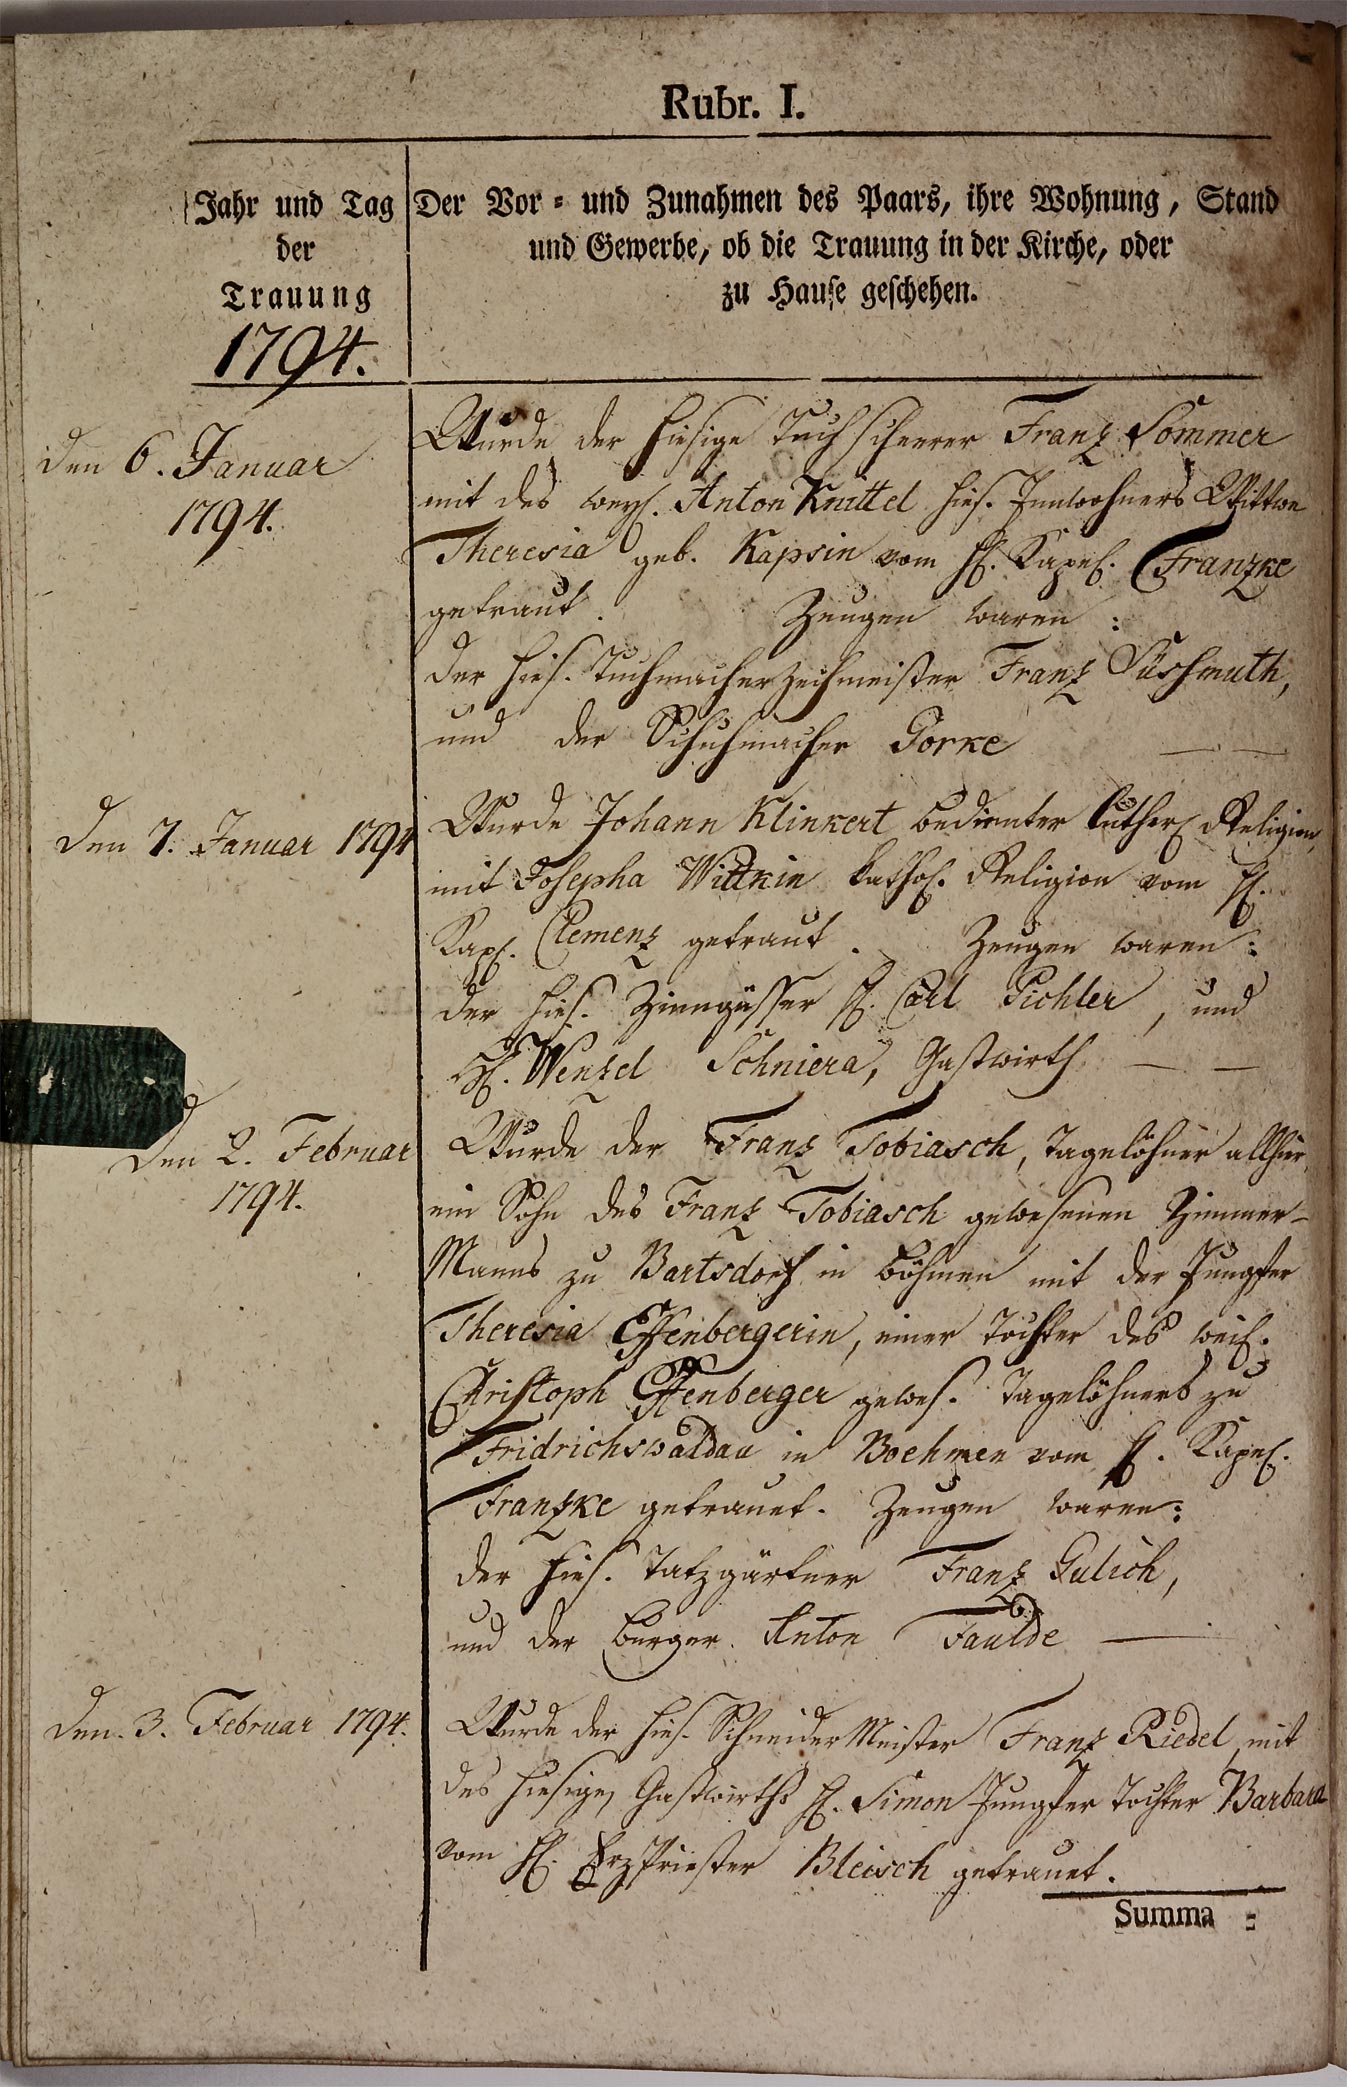 Rubr. I.
Jahr und Tag
der
Trauung
1794.
Der Vor- und Zunahmen des Paars, ihre Wohnung, Stand
und Gewerbe, ob die Trauung in der Kirche, oder
zu Hause geschehen.
den 6. Januar
1794.
Wurde der hiesige Tuchscheerer Franz Sommer
mit des weyl. Anton Knittel hies. Innwohners Wittwe
Theresia geb. Kapsin vom H. Kapel. Franzke
getraut. Zeugen waren:
der hies. Tuchmacherzechmeister Franz Süssmuth,
und der Schuhmacher Porke
den 7. Januar 1794
Wurde Johann Klinkert bedienter luther. Religion,
mit Josepha Wittkin kathol. Religion vom H.
Kapl. Clemenz getraut. Zeugen waren:
der hies. Zinngüsser H. Carl Pichler, und
H. Wenzel Schniera, Gastwirth
Den 2. Februar
1794.
Wurde der Franz Tobiasch, Tagelöhner allhier,
ein Sohn des Franz Tobiasch gewesenen Zimmer-
Manns zu Bartsdorf in Böhmen mit der Jungfer
Theresia Effenbergerin, einer Tochter des weil.
Christoph Effenberger gewes. Tagelöhners zu
Fridrichswaldau in Boehmen vom H. Kapel.
Franzke getrauet. Zeugen waren:
der hies. Franz Gulich,
und der Burger Anton Faulde
Den 3. Februar 1794.
Wurde der hies. Schneider Meister Franz Riedel mit
des hiesigen Gastwirths H. Simon Jungfer Tochter Barbara
vom H. Erzpriester Bleisch getrauet.
Summa =